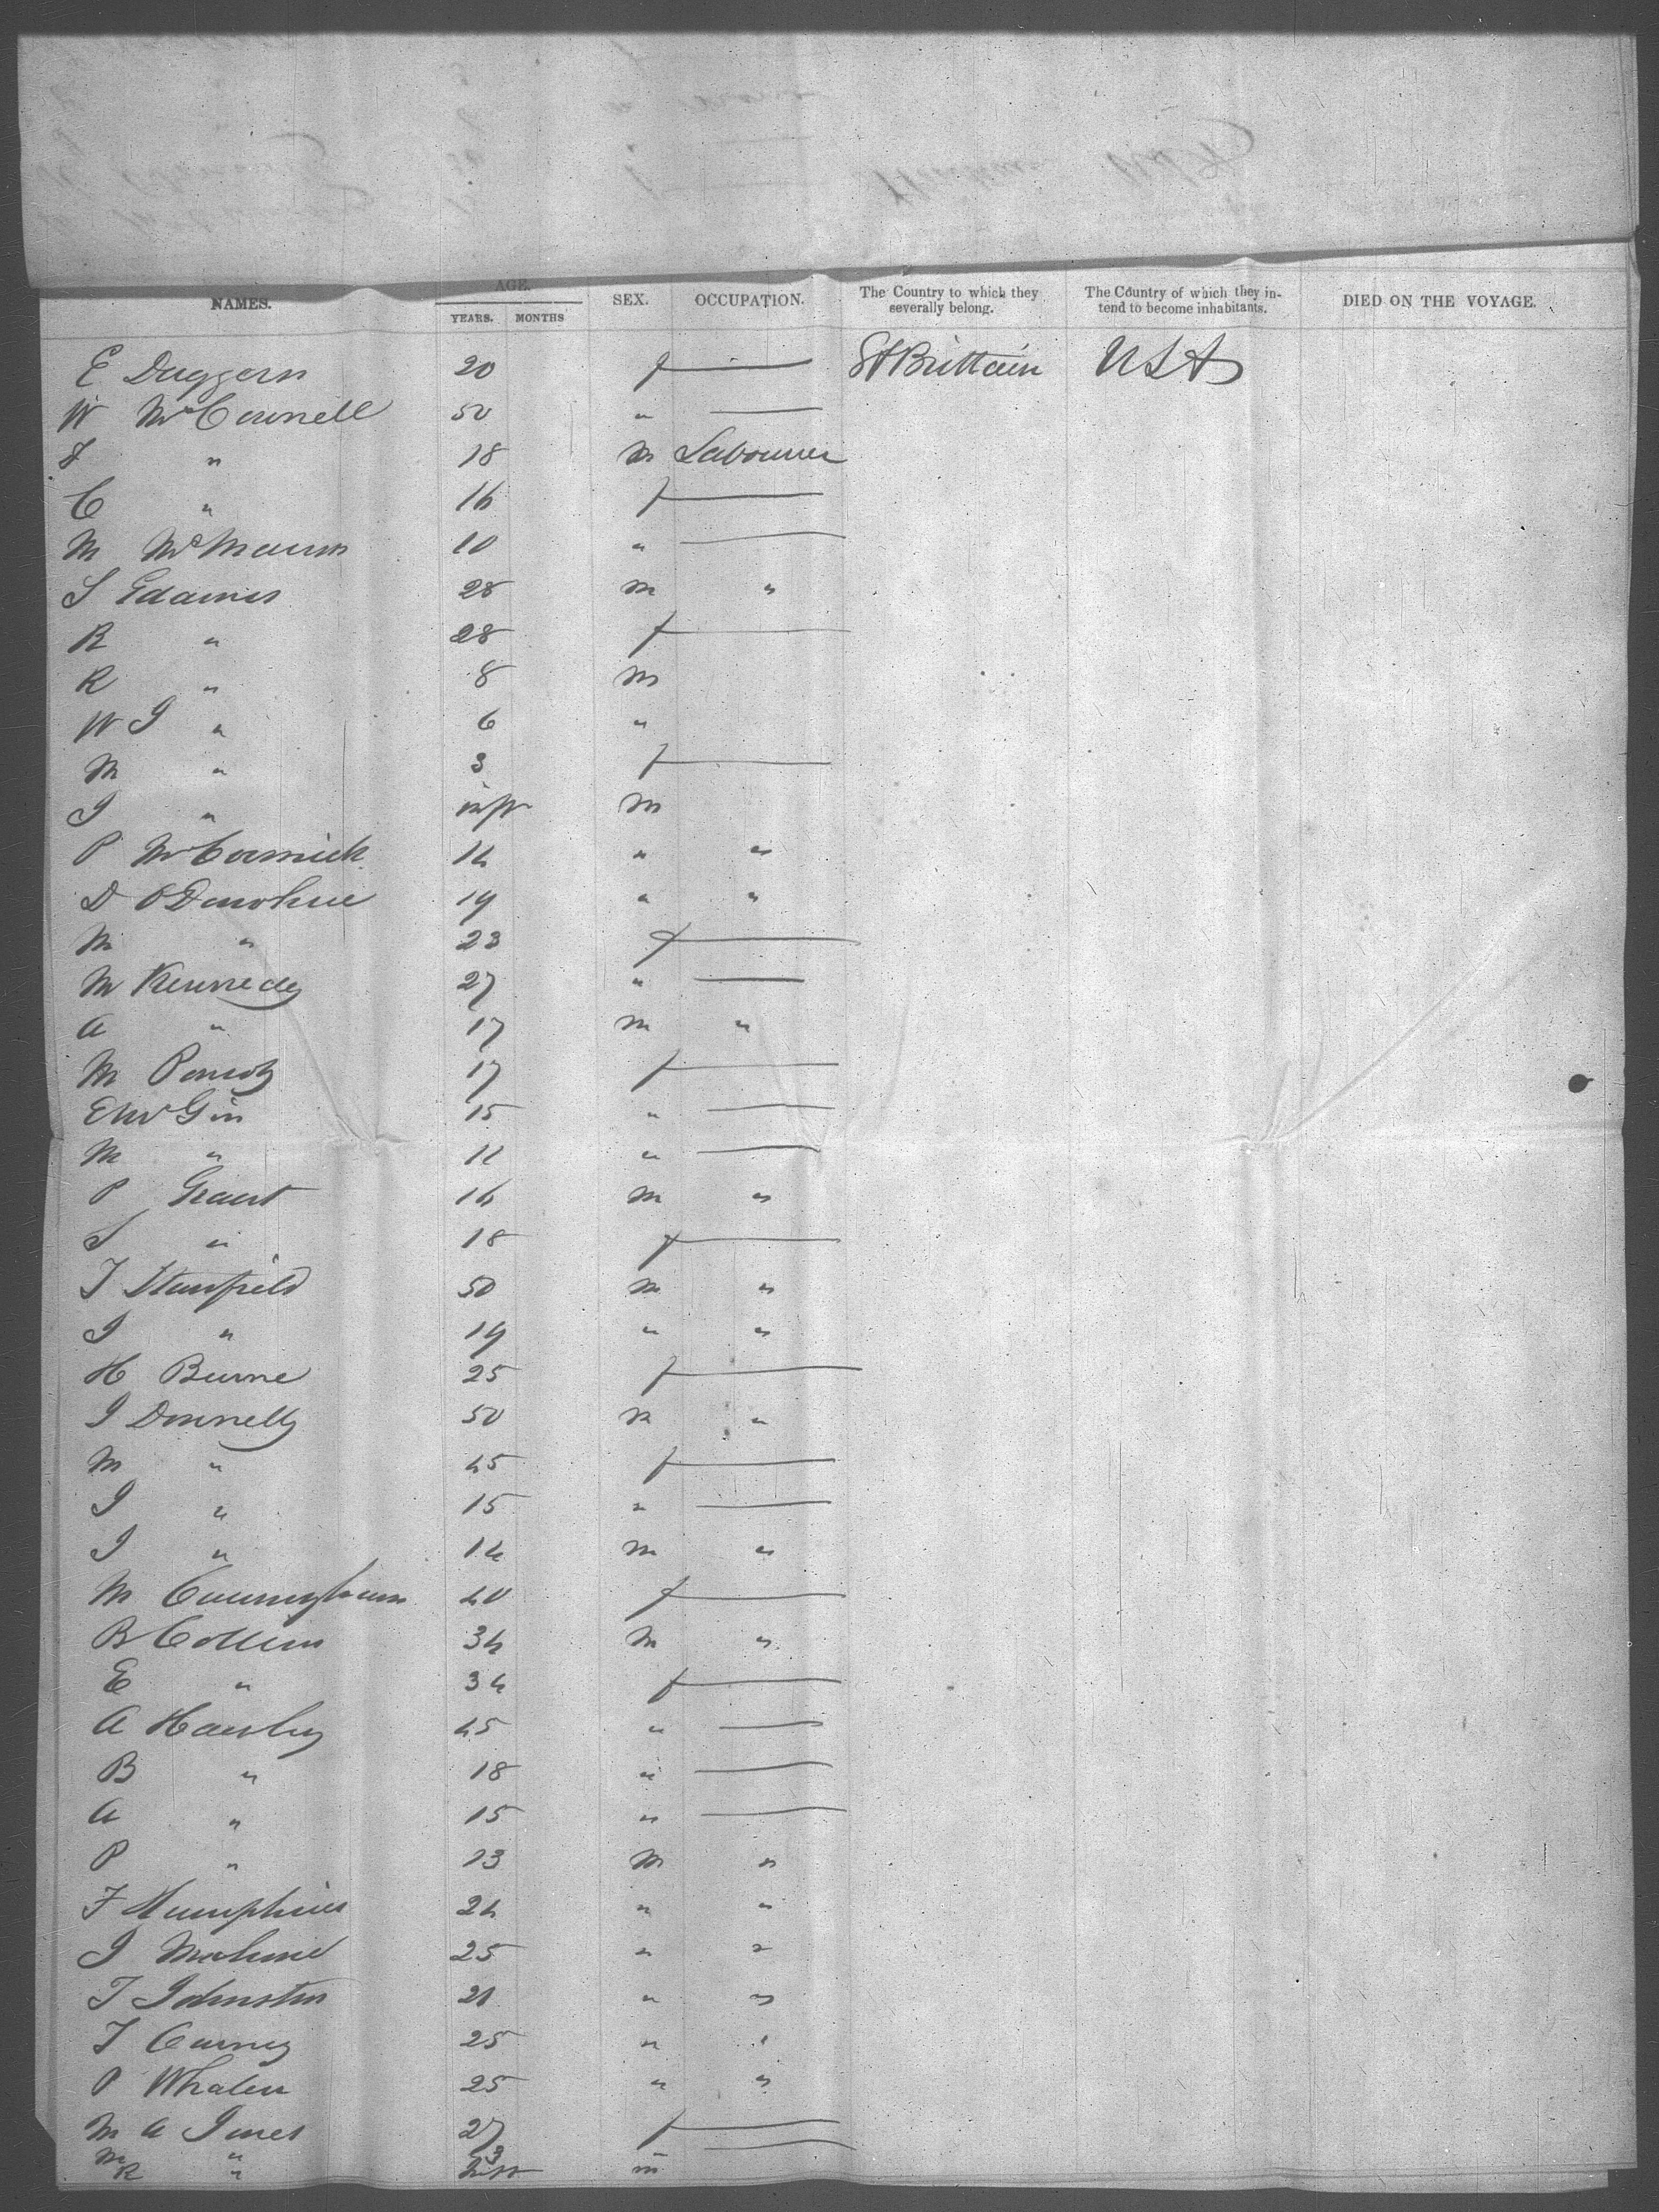 NAMES. AGE. YEARS. MONTHS SEX. OCCUPATION. The Country to which they severally belong. The Country of which they intend to become inhabitants. DIED ON THE VOYAGE.
E Duggern 20 f — Gt Brittain USA
W McConnell 50 " —
J " 18 m Labourer
C " 16 f —
M McMann 10 " —
S Edames 28 m "
R " 28 f —
R " 8 m
W J " 6 "
M " 3 f —
J " inft m
P McCormick 14 " "
D ODonohue 19 " "
M " 23 f —
M Kennedy 27 " —
A " 17 m "
M 17 f —
E McGin 15 " —
M " 11 " —
P Grant 16 m "
S " 18 f —
T Stanfield 50 m "
J " 19 " "
H Burne 25 f —
J Donnelly 50 m "
M " 45 f —
J " 15 " —
J " 14 m "
M Cunningham 40 f —
B Collins 34 m "
E " 34 f —
A Hanley 45 " —
B " 18 " —
A " 15 " —
P " 13 m "
F Humphries 24 " "
J Malone 25 " "
T Johnston 21 " "
T Curney 25 " "
P Whalen 25 " "
M A Jones 27 f —
M " 3 —
R " inft m